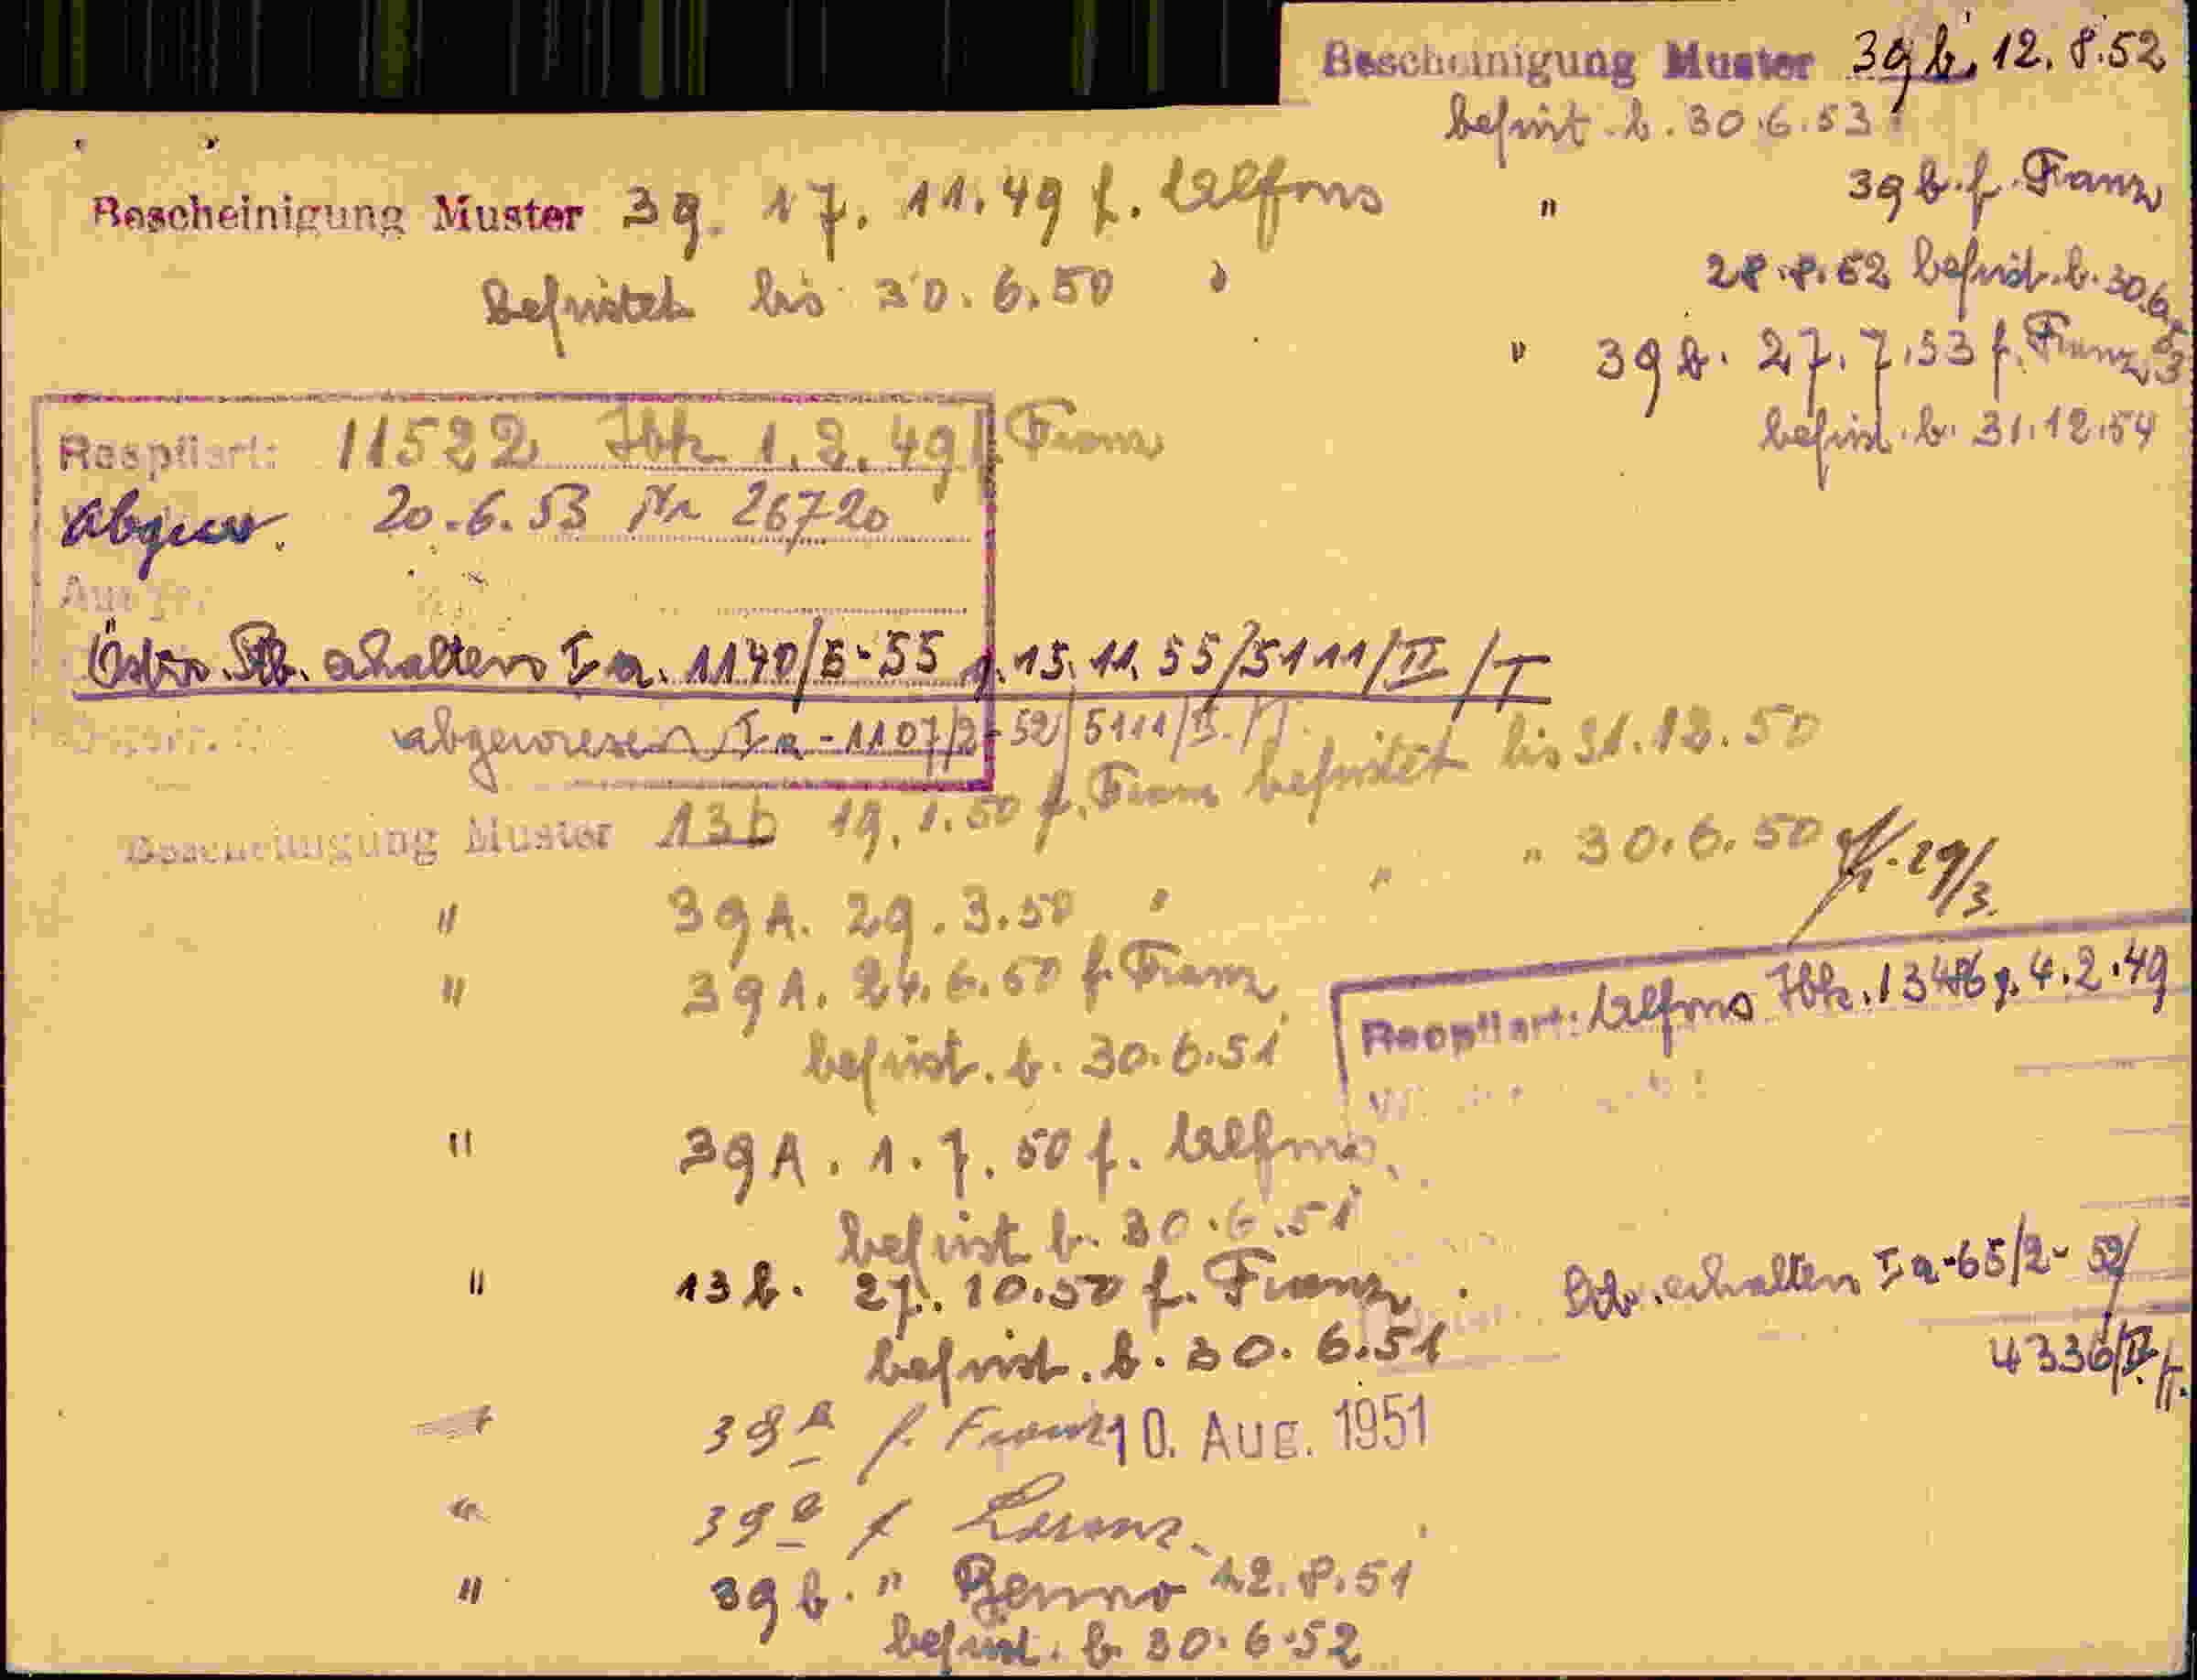 Bescheinigung Muster 39b. 12. 8. 52
befrist. b. 30.6.53
" 39b. f. Franz
28.8.52 befrist. b. 30.6.53
" 39b. 27.7.53 f. Franz
befrist. b. 31.12.54
Bescheinigung Muster 39. 17. 11. 49 f. Alfons
Befristet bis 30. 6. 50
Reoptiert: 11522 Ibk 1. 2. 49 f. Franz
abgew. 20.6.53 Nr 26720
Östr. Stb. erhalten I a. 1140/5-55 v. 15. 11. 55/5111/II/T
abgewiesen I a - 1107/2-52/5111/II./T.
Bescheinigung Muster 13b 19. 1. 50 f. Franz befristet bis 31. 12. 50
" 39A. 29. 3. 50 " " " 30. 6. 50 29/3.
" 39A. 24. 6. 50 f. Franz
befrist. b. 30. 6. 51
Reoptiert: Alfons Ibk. 13486 v. 4. 2. 49
" 39A. 1. 7. 50 f. Alfons
befrist b. 30. 6. 51
" 13b. 27. 10. 50 f. Franz
befrist. b. 30. 6. 51
erhalten I a-65/2-52/
4336/II./T.
39a f. Franz 10. Aug. 1951
" 39a f Lorenz
" 39b. " Benno 12. 8. 51
befrist. b. 30. 6. 52